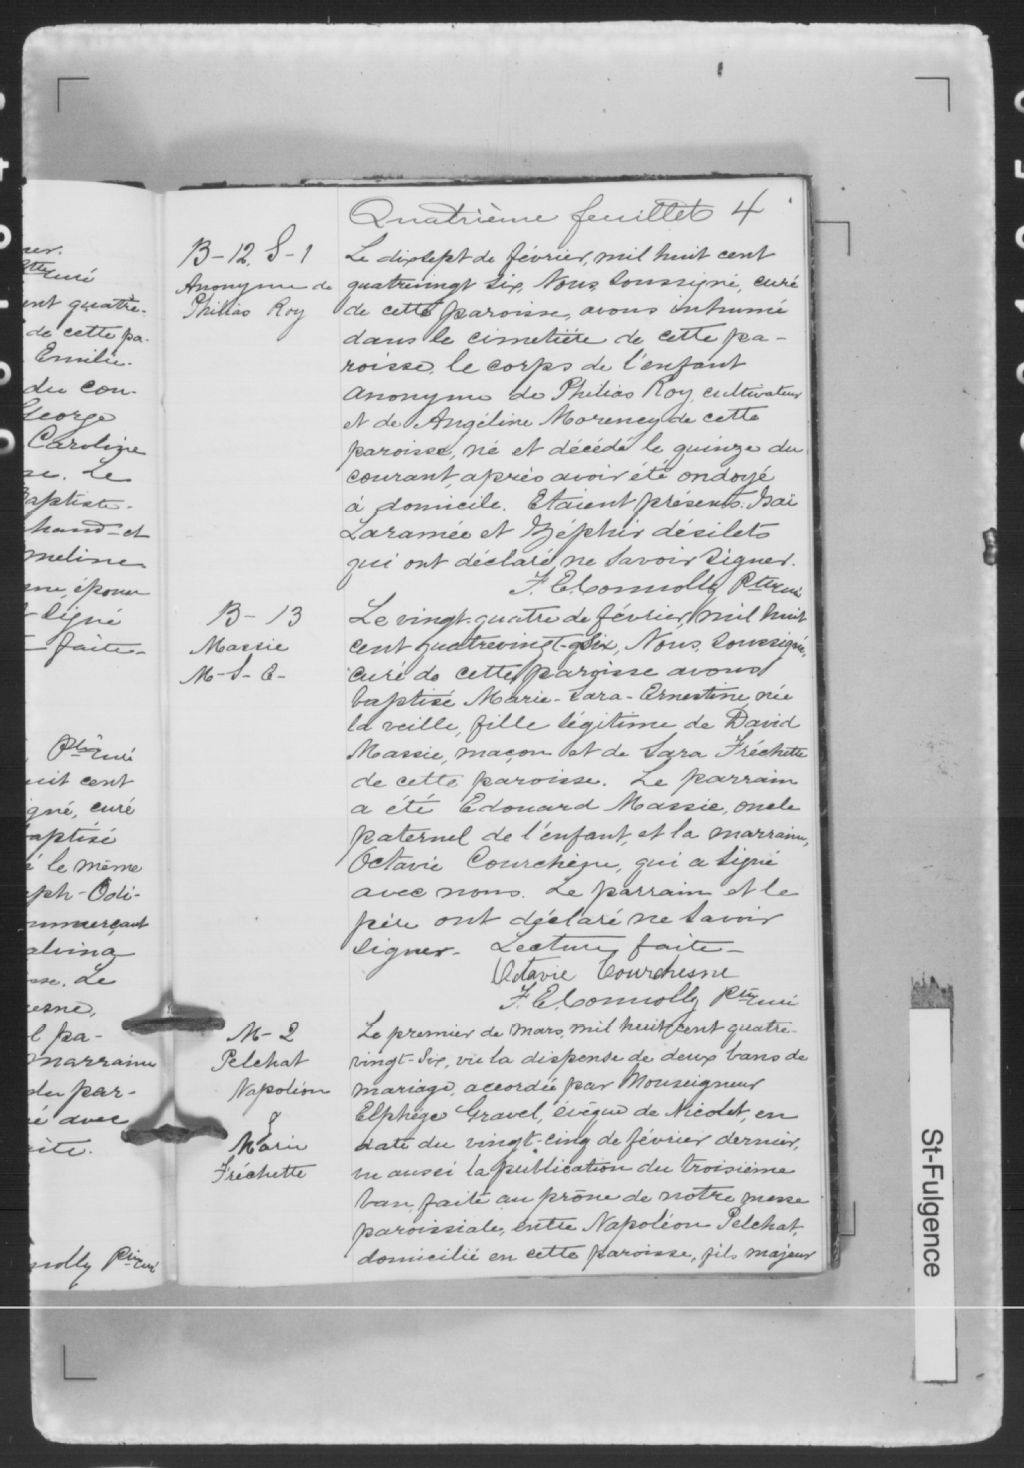 Quatrième feuillet 4
B-12. S-1
Anonyme de
Philias Roy
Le dixsept de février, mil huit cent
quatrevingt six, Nous soussigné, curé
de cette paroisse, avons inhumé
dans le cimetière de cette pa-
roisse, le corps de l'enfant
anonyme de Philias Roy, cultivateur
et de Angéline Morency de cette
paroisse, né et décédé le quinze du
courant, après avoir été ondoyé
à domicile. Etaient présents
Laramée et Zéphir désilets
qui ont déclaré ne savoir signer.
F. E. Connolly Ptre curé
B-13
Massie
M-S-E-
Le vingt-quatre de février, mil huit
cent quatrevingt-six, Nous, soussigné,
curé de cette paroisse avons
baptisé Marie-Sara-Ernestine, née
la veille, fille légitime de David
Massie, maçon et de Sara Fréchette
de cette paroisse. Le parrain
a été Edouard Massie, oncle
paternel de l'enfant, et la marraine,
Octavie Courchène, qui a signé
avec nous. Le parrain et le
père ont déclaré ne savoir
signer. Lecture faite-
Octavie Courchesne
F. E. Connolly Ptre curé
M-2
Pelchat
Napoléon
&
Marie
Fréchette
Le premier de mars, mil huit cent quatre-
vingt-six, vu la dispense de deux bans de
mariage, accordée par Monseigneur
Elphège Gravel, évêque de Nicolet, en
date du vingt-cinq de février dernier,
vu aussi la publication du troisième
ban, faite au prône de notre messe
paroissiale, entre Napoléon Pelchat,
domicilié en cette paroisse, fils majeur
curé
ent quatre-
de cette pa-
Emilie
du con-
George
Caroline
se. Le
Baptiste
hand et
meline
me, épouse
signé
faite-
Ptre curé
uit cent
igné, curé
aptisé
é le même
eph-Odi-
ommerçant
alvina
sse. Le
esne,
l pa-
marraine
du par-
é avec
aite.
nolly Ptre curé
St-Fulgence